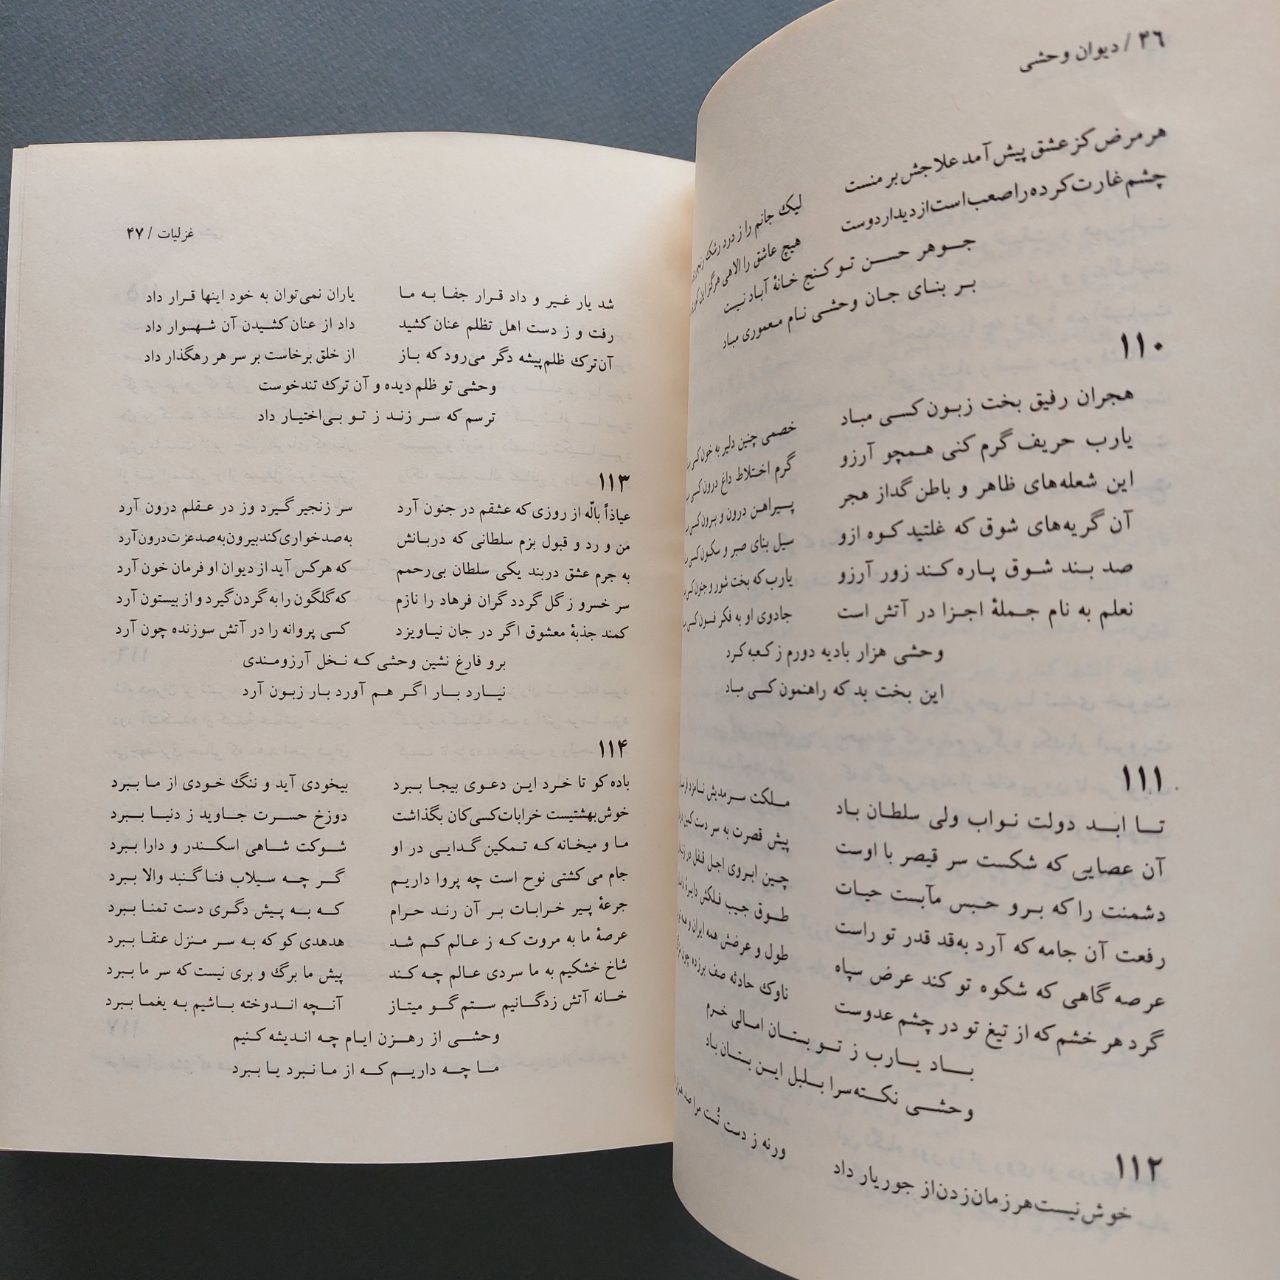 ۴۶ / دیوان وحشی
هر مرض کز عشق پیش آمد علاجش بر منست لیک جانم را ز درد رشك
چشم غارت کرده را صعب است از دیدار دوست هیچ عاشق را الاهی هرگز
جوهر حسن تو کنج خانهٔ آباد نیست
بر بنای جان وحشی نام معموری مباد
۱۱۰
هجران رفیق بخت زبون کسی مباد خصمی چنین دلیر به خون کسی
یارب حریف گرم کنی همچو آرزو گرم اختلاط داغ درون کسی
این شعله‌های ظاهر و باطن گداز هجر پیراهن درون و برون کسی
آن گریه‌های شوق که غلتید کوه ازو سیل بنای صبر و سکون کسی
صد بند شوق پاره کند زور آرزو یارب که بخت شور و جنون کسی
نعلم به نام جملهٔ اجزا در آتش است جادوی او به فکر فسون کسی
وحشی هزار بادیه دورم ز کعبه کرد
این بخت بد که راهنمون کسی مباد
۱۱۱
تا ابد دولت نواب ولی سلطان باد ملکت سرمدیش نامزد
آن عصایی که شکست سر قیصر با اوست پیش قصرت به سر دست
دشمنت را که برو حبس مآبست حیات چین ابروی اجل قفل در
رفعت آن جامه که آرد به‌قد قدر تو راست طوق جیب فلکش دایرهٔ
عرصه گاهی که شکوه تو کند عرض سپاه طول و عرضش همه ایران و
گرد هر خشم که از تیغ تو در چشم عدوست ناوك حادثه صف برزده چون
باد یارب ز تو بستان امالی خرم
وحشی نکته‌سرا بلبل این بستان باد
۱۱۲
خوش نیست هر زمان زدن از جور یار داد ورنه ز دست تُست مرا صد
غزلیات / ۴۷
شد یار غیر و داد قرار جفا به ما یاران نمی‌توان به خود اینها قرار داد
رفت و ز دست اهل تظلم عنان کشید داد از عنان کشیدن آن شهسوار داد
آن ترك ظلم‌پیشه دگر می‌رود که باز از خلق برخاست بر سر هر رهگذار داد
وحشی تو ظلم دیده و آن ترك تندخوست
ترسم که سر زند ز تو بی‌اختیار داد
۱۱۳
عیاذاً بالّله از روزی که عشقم در جنون آرد سر زنجیر گیرد وز در عقلم درون آرد
من و رد و قبول بزم سلطانی که دربانش به صد خواری کند بیرون به صد عزت درون آرد
به جرم عشق دربند یکی سلطان بی‌رحمم که هرکس آید از دیوان او فرمان خون آرد
سر خسرو ز گل گردد گران فرهاد را نازم که گلگون را به گردن گیرد و از بیستون آرد
کمند جذبهٔ معشوق اگر در جان نیاویزد کسی پروانه را در آتش سوزنده چون آرد
برو فارغ نشین وحشی که نخل آرزومندی
نیارد بار اگر هم آورد بار زبون آرد
۱۱۴
باده کو تا خرد این دعوی بیجا ببرد بیخودی آید و ننگ خودی از ما ببرد
خوش بهشتیست خرابات کسی کان بگذاشت دوزخ حسرت جاوید ز دنیا ببرد
ما و میخانه که تمکین گدایی در او شوکت شاهی اسکندر و دارا ببرد
جام می کشتی نوح است چه پروا داریم گر چه سیلاب فنا گنبد والا ببرد
جرعهٔ پیر خرابات بر آن رند حرام که به پیش دگری دست تمنا ببرد
عرصهٔ ما به مروت که ز عالم کم شد هدهدی کو که به سر منزل عنقا ببرد
شاخ خشکیم به ما سردی عالم چه کند پیش ما برگ و بری نیست که سر ما ببرد
خانه آتش زدگانیم ستم گو میتاز آنچه اندوخته باشیم به یغما ببرد
وحشی از رهزن ایام چه اندیشه کنیم
ما چه داریم که از ما نبرد یا ببرد